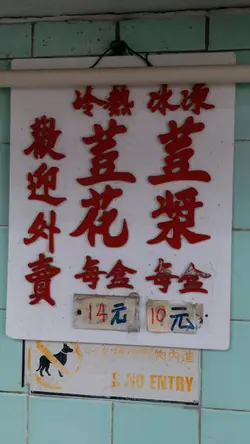 冰凍
荳漿
每盒
10元
冷熱
荳花
每盒
14元
歡迎外賣
內進
NO ENTRY